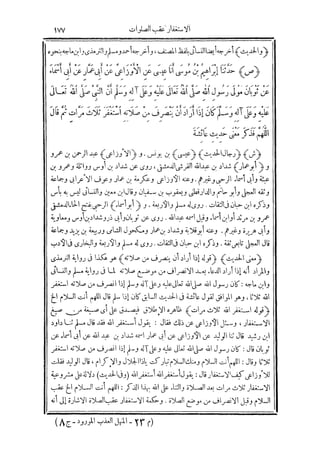 الاستغفار عقب الصلوات ١٧٧
(والحديث) أخرجه أيضا النسائى بلفظ المصنف، وأخرجه أحمد ومسلم والترمذى وابن ماجه بنحوه
(ص) حَدَّثَنَا إِبْرَاهِيمُ بْنُ مُوسَى أَنَا عِيسَى عَنِ الْأَوْزَاعِيِّ عَنْ أَبِي عَمَّارٍ عَنْ أَبِي أَسْمَاءَ
عَنْ ثَوْبَانَ مَوْلَى رَسُولِ اللهِ صَلَّى اللهُ تَعَالَى عَلَيْهِ وَعَلَى آلِهِ وَسَلَّمَ أَنَّ النَّبِيَّ صَلَّى اللهُ تَعَالَى
عَلَيْهِ وَعَلَى آلِهِ وَسَلَّمَ كَانَ إِذَا أَرَادَ أَنْ يَنْصَرِفَ مِنْ صَلَاتِهِ اسْتَغْفَرَ ثَلَاثَ مَرَّاتٍ ثُمَّ قَالَ
اللَّهُمَّ فَذَكَرَ مَعْنَى حَدِيثِ عَائِشَةَ
(ش) (رجال الحديث) (عيسى) بن يونس. و (الأوزاعى) عبد الرحمن بن عمرو
و (أبو عمار) شداد بن عبد الله القرشى الدمشقى، روى عن شداد بن أوس وواثلة وعمرو بن
عبسة وأبى أسماء الرحبى وغيرهم. وعنه الأوزاعى وعكرمة بن عمار وعوف الأعرابى وجماعة
وثقه العجلى وأبو حاتم والدارقطنى ويعقوب بن سفيان وقال ابن معين والنسائى ليس به بأس
وذكره ابن حبان فى الثقات. روى له مسلم والأربعة. و (أبو أسماء) الرحبى
عمرو بن مرثد أو ابن أسماء، وقيل اسمه عبد الله. روى عن ثوبان وأبى ذر وشداد بن أوس ومعاوية
وأبى هريرة وغيرهم. وعنه أبو قلابة وشداد بن عمار ومكحول الشامى وربيعة بن يزيد وجماعة
قال العجلى تابعى ثقة. وذكره ابن حبان فى الثقات. روى له مسلم والأربعة والبخارى فى الأدب
(معنى الحديث) (قوله إذا أراد أن ينصرف من صلاته) هو هكذا فى رواية الترمذى
والمراد أنه إذا أراد الدعاء بعد الانصراف من موضع صلاته لما فى رواية مسلم والنسائى
وابن ماجه: كان رسول الله صلى الله تعالى عليه وعلى آله وسلم إذا انصرف من صلاته استغفر
الله ثلاثا، وهو الموافق لقول عائشة فى الحديث السابق كان إذا سلم قال اللهم أنت السلام الخ
(قوله استغفر الله ثلاث مرات) ظاهره الإطلاق فيصدق على أى صيغة من صيغ
الاستغفار، وسئل الأوزاعى عن ذلك فقال: يقول أستغفر الله فقد قال مسلم ثنا داود
ابن رشيد قال ثنا الوليد عن الأوزاعى عن أبى عمار اسمه شداد بن عبد الله عن أبى أسماء عن
ثوبان قال: كان رسول الله صلى الله تعالى عليه وعلى آله وسلم إذا انصرف من صلاته استغفر
ثلاثا وقال: اللهم أنت السلام ومنك السلام تباركت يا ذا الجلال والإكرام، قال الوليد فقلت
للأوزاعى كيف الاستغفار قال: يقول أستغفر الله أستغفر الله (وفى الحديث) دلالة على مشروعية
الاستغفار ثلاث مرات بعد الصلاة والثناء على الله بهذا الذكر: اللهم أنت السلام الخ عقب
السلام وقبل الانصراف من موضع الصلاة. وحكمة الاستغفار عقب الصلاة الإشارة إلى أنه
(م ٢٣ - المنهل العذب المورود - ج ٨)